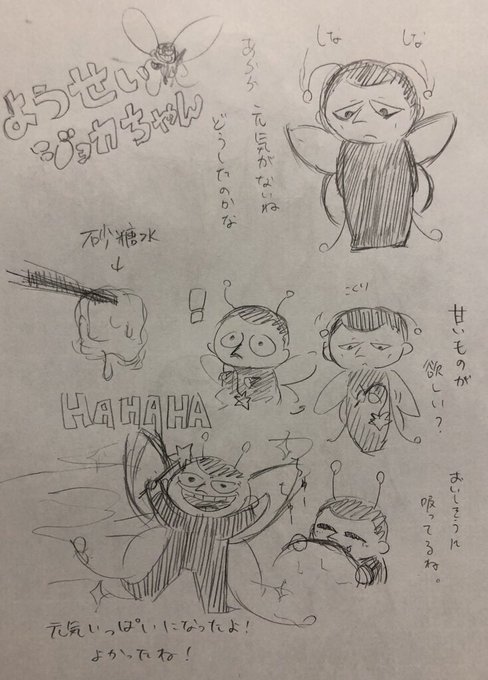 ようせい
ジョカちゃん
しな しな
あらら 元気がないね
どうしたのかな
甘いものが
欲しい?
こくり
砂糖水
↓
!!
おいしそうに
吸ってるね。
HAHAHA
元気いっぱいになったよ!
よかったね!